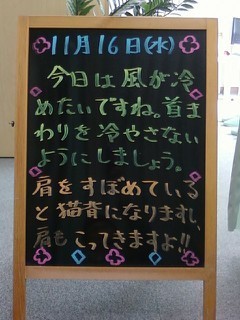 11月16日(水)
今日は風が冷
めたいですね。首ま
わりを冷やさない
ようにしましょう。
肩をすぼめている
と猫背になりますし、
肩もこってきますよ!!